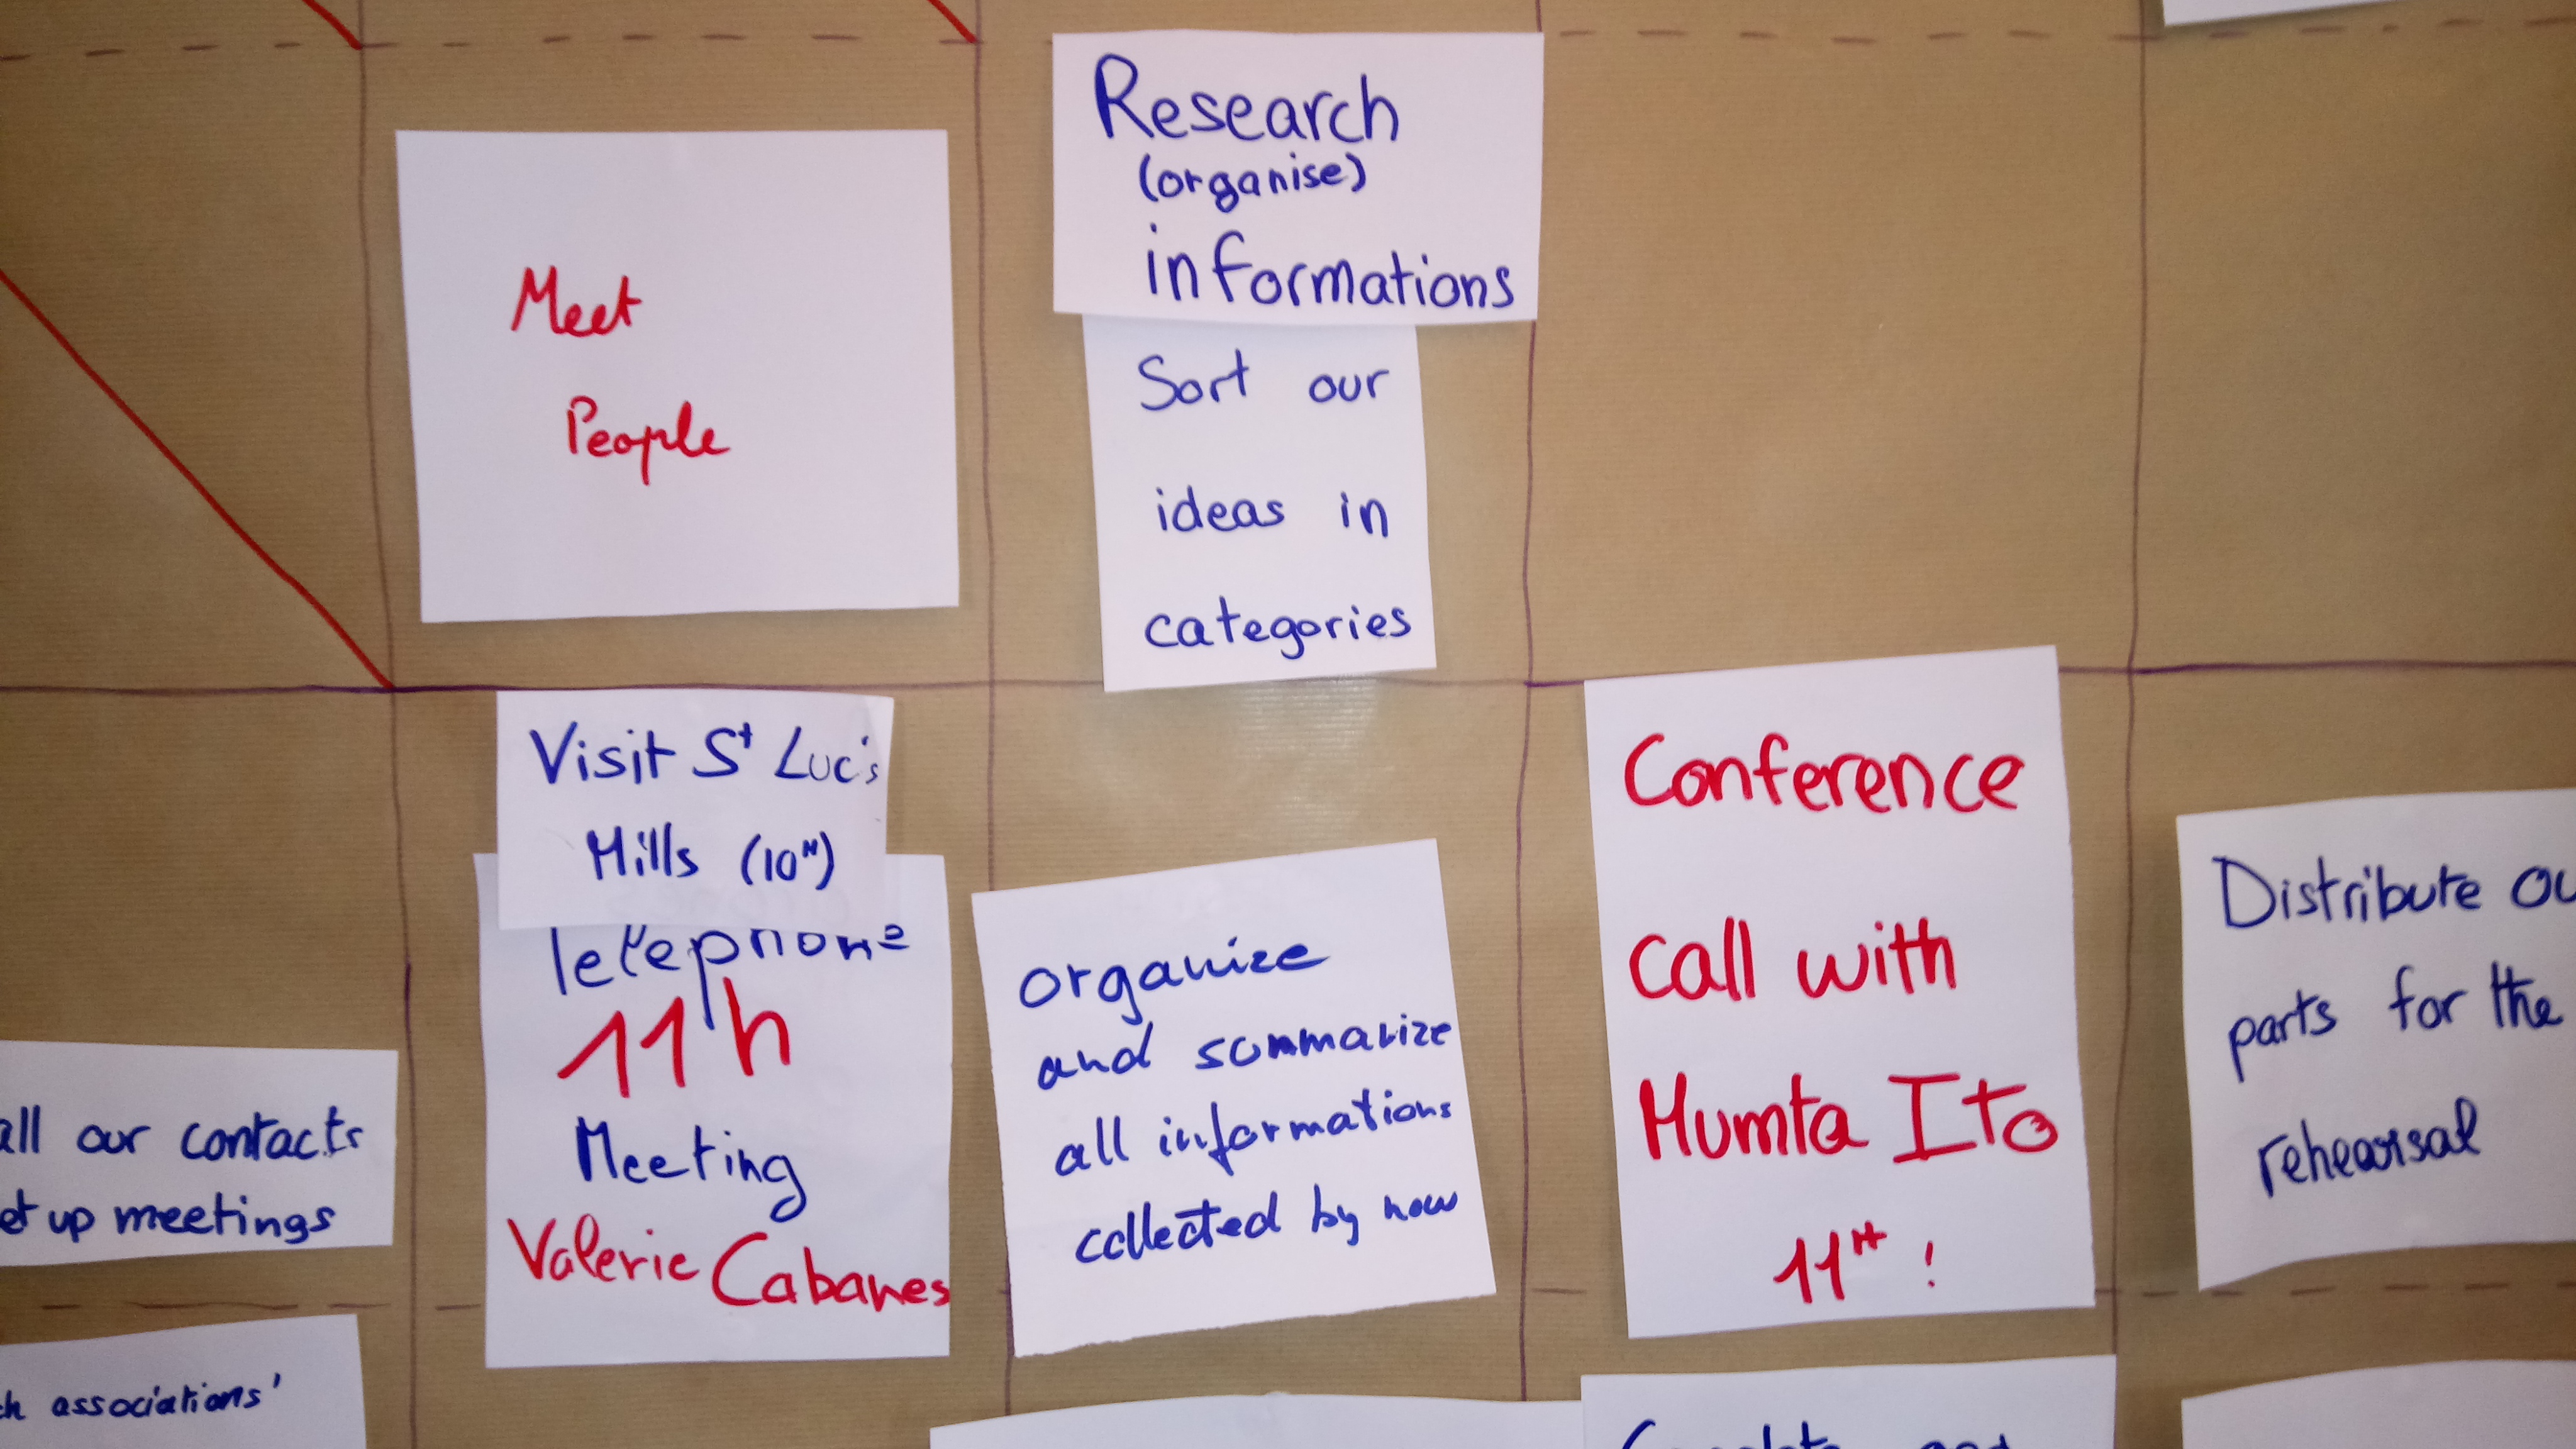 Meet
People
Research
(organise)
informations
Sort our
ideas in
categories
Visit St Luc's
Mills (10H)
Telephone
11h
Meeting
Valerie Cabanes
organize
and summarize
all informations
collected by now
Conference
Call with
Mumta Ito
11H !
Distribute
parts for the
rehearsal
all our contacts
up meetings
associations'